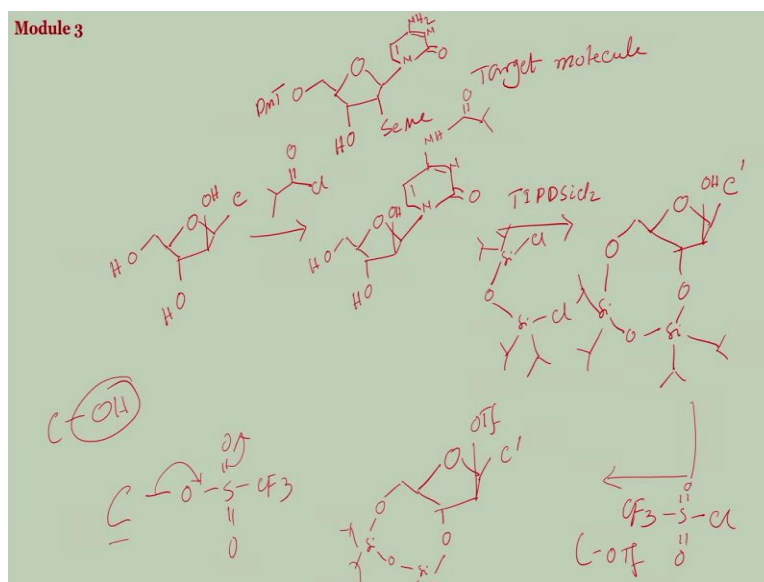 Module 3
NH2
N
N
O
O
DMT O
HO
SeMe
Target molecule
O
NH
O
Cl
OH
C
O
HO
HO
N
N
O
OH
O
HO
HO
TIPDSiCl2
Cl
Si
O
Si-Cl
OH
C'
O
O
O
Si
O
Si
C-OH
C-O-S-CF3
O
O
OTf
C'
O
O
O
Si
O
Si
O
CF3-S-Cl
O
C-OTf